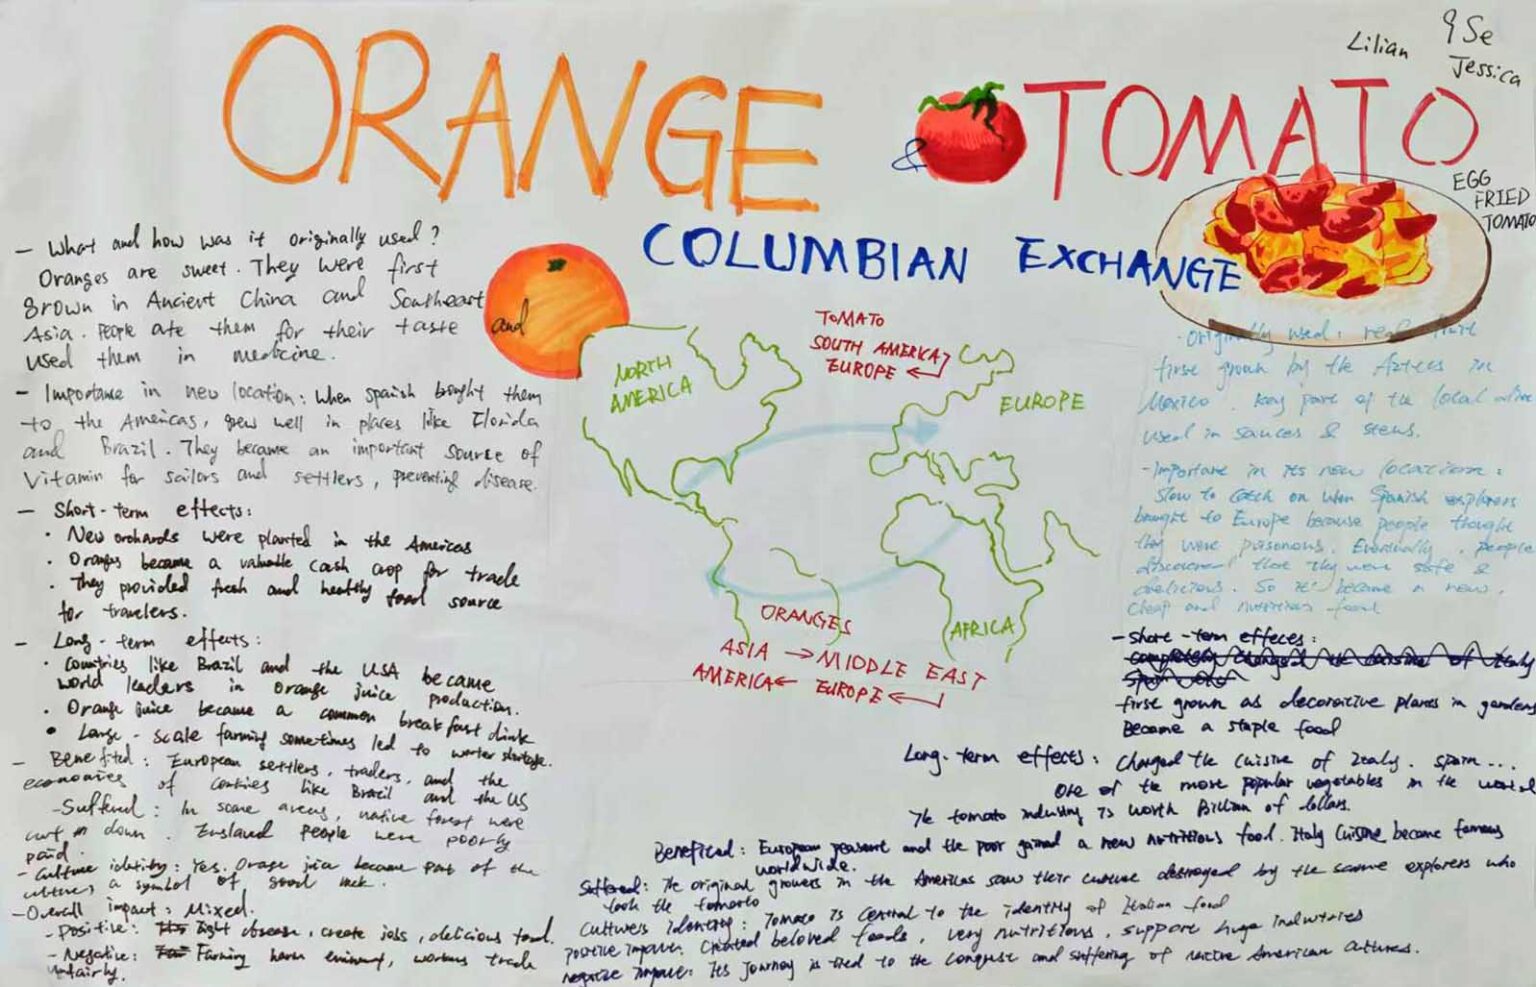 ORANGE & TOMATO
Lilian 9Se
Jessica
COLUMBIAN EXCHANGE
EGG
FRIED
TOMATO
- What and how was it originally used?
Oranges are sweet. They were first
grown in Ancient China and Southeast
Asia. People ate them for their taste and
used them in medicine.
- Importance in new location: When Spanish brought them
to the Americas, grew well in places like Florida
and Brazil. They became an important source of
Vitamin for sailors and settlers, preventing disease.
- Short-term effects:
• New orchards were planted in the Americas
• Oranges became a valuable cash crop for trade
• They provided fresh and healthy food source
for travelers.
- Long-term effects:
• Countries like Brazil and the USA became
world leaders in orange juice production.
• Orange juice became a common breakfast drink
• Large-scale farming sometimes led to water shortage.
- Benefited: European settlers, traders, and the
economies of contries like Brazil and the US
- Suffered: In some areas, native forest were
cut down. People were poorly
paid.
- Culture identity: Yes. Orange juice became part of the
cultures a symbol of good luck.
- Overall impact: Mixed.
- Positive: fight disease, create jobs, delicious food.
- Negative: Farming harm, workers trade
unfairly.
NORTH
AMERICA
TOMATO
SOUTH AMERICA
EUROPE ←
EUROPE
AFRICA
ORANGES
ASIA → MIDDLE EAST
AMERICA ← EUROPE ←
- Originally used:
first grown by the Aztecs in
Mexico. Key part of the local
used in sauces & stews.
- Important in its new location:
Slow to catch on when Spanish explorers
brought to Europe because people thought
they were poisonous. Eventually, people
discovered that they were safe &
delicious. So it became a new,
cheap and nutritious food
- Short-term effeces:
completely changed the cuisine of Italy
first grown as decorative plants in gardens
Became a staple food
Long-term effects: Changed the cuisine of Italy, Spain...
One of the most popular vegetables in the world
The tomato industry is worth Billion of dollars.
Beneficed: European peasant and the poor gained a new nutritious food. Italy Cuisine became famous
worldwide.
Suffered: The original growers in the Americas saw their culture destroyed by the same explorers who
took the tomato
Cultures identity: Tomato is central to the identity of Italian food
Positive impact: Created beloved foods, very nutritions, support huge industries
negative impact: Its journey is tied to the conquest and suffering of native American cultures.